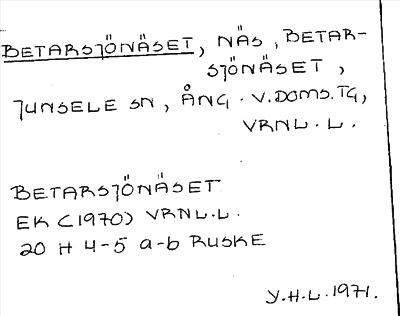 BETARSJÖNÄSET, NÄS, BETAR-
SJÖNÄSET,
JUNSELE SN, ÅNG. V. DOMS. TG,
VRNL. L.
BETARSJÖNÄSET
EK (1970) VRNL. L.
20 H 4-5 a-b RUSKE
Y.H.L. 1971.